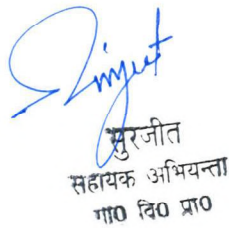 सुरजीत
सहायक अभियन्ता
गा0 वि0 प्रा0